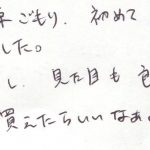 ごもり、初めて
した。
し、見た目も
買えたらいいなぁ